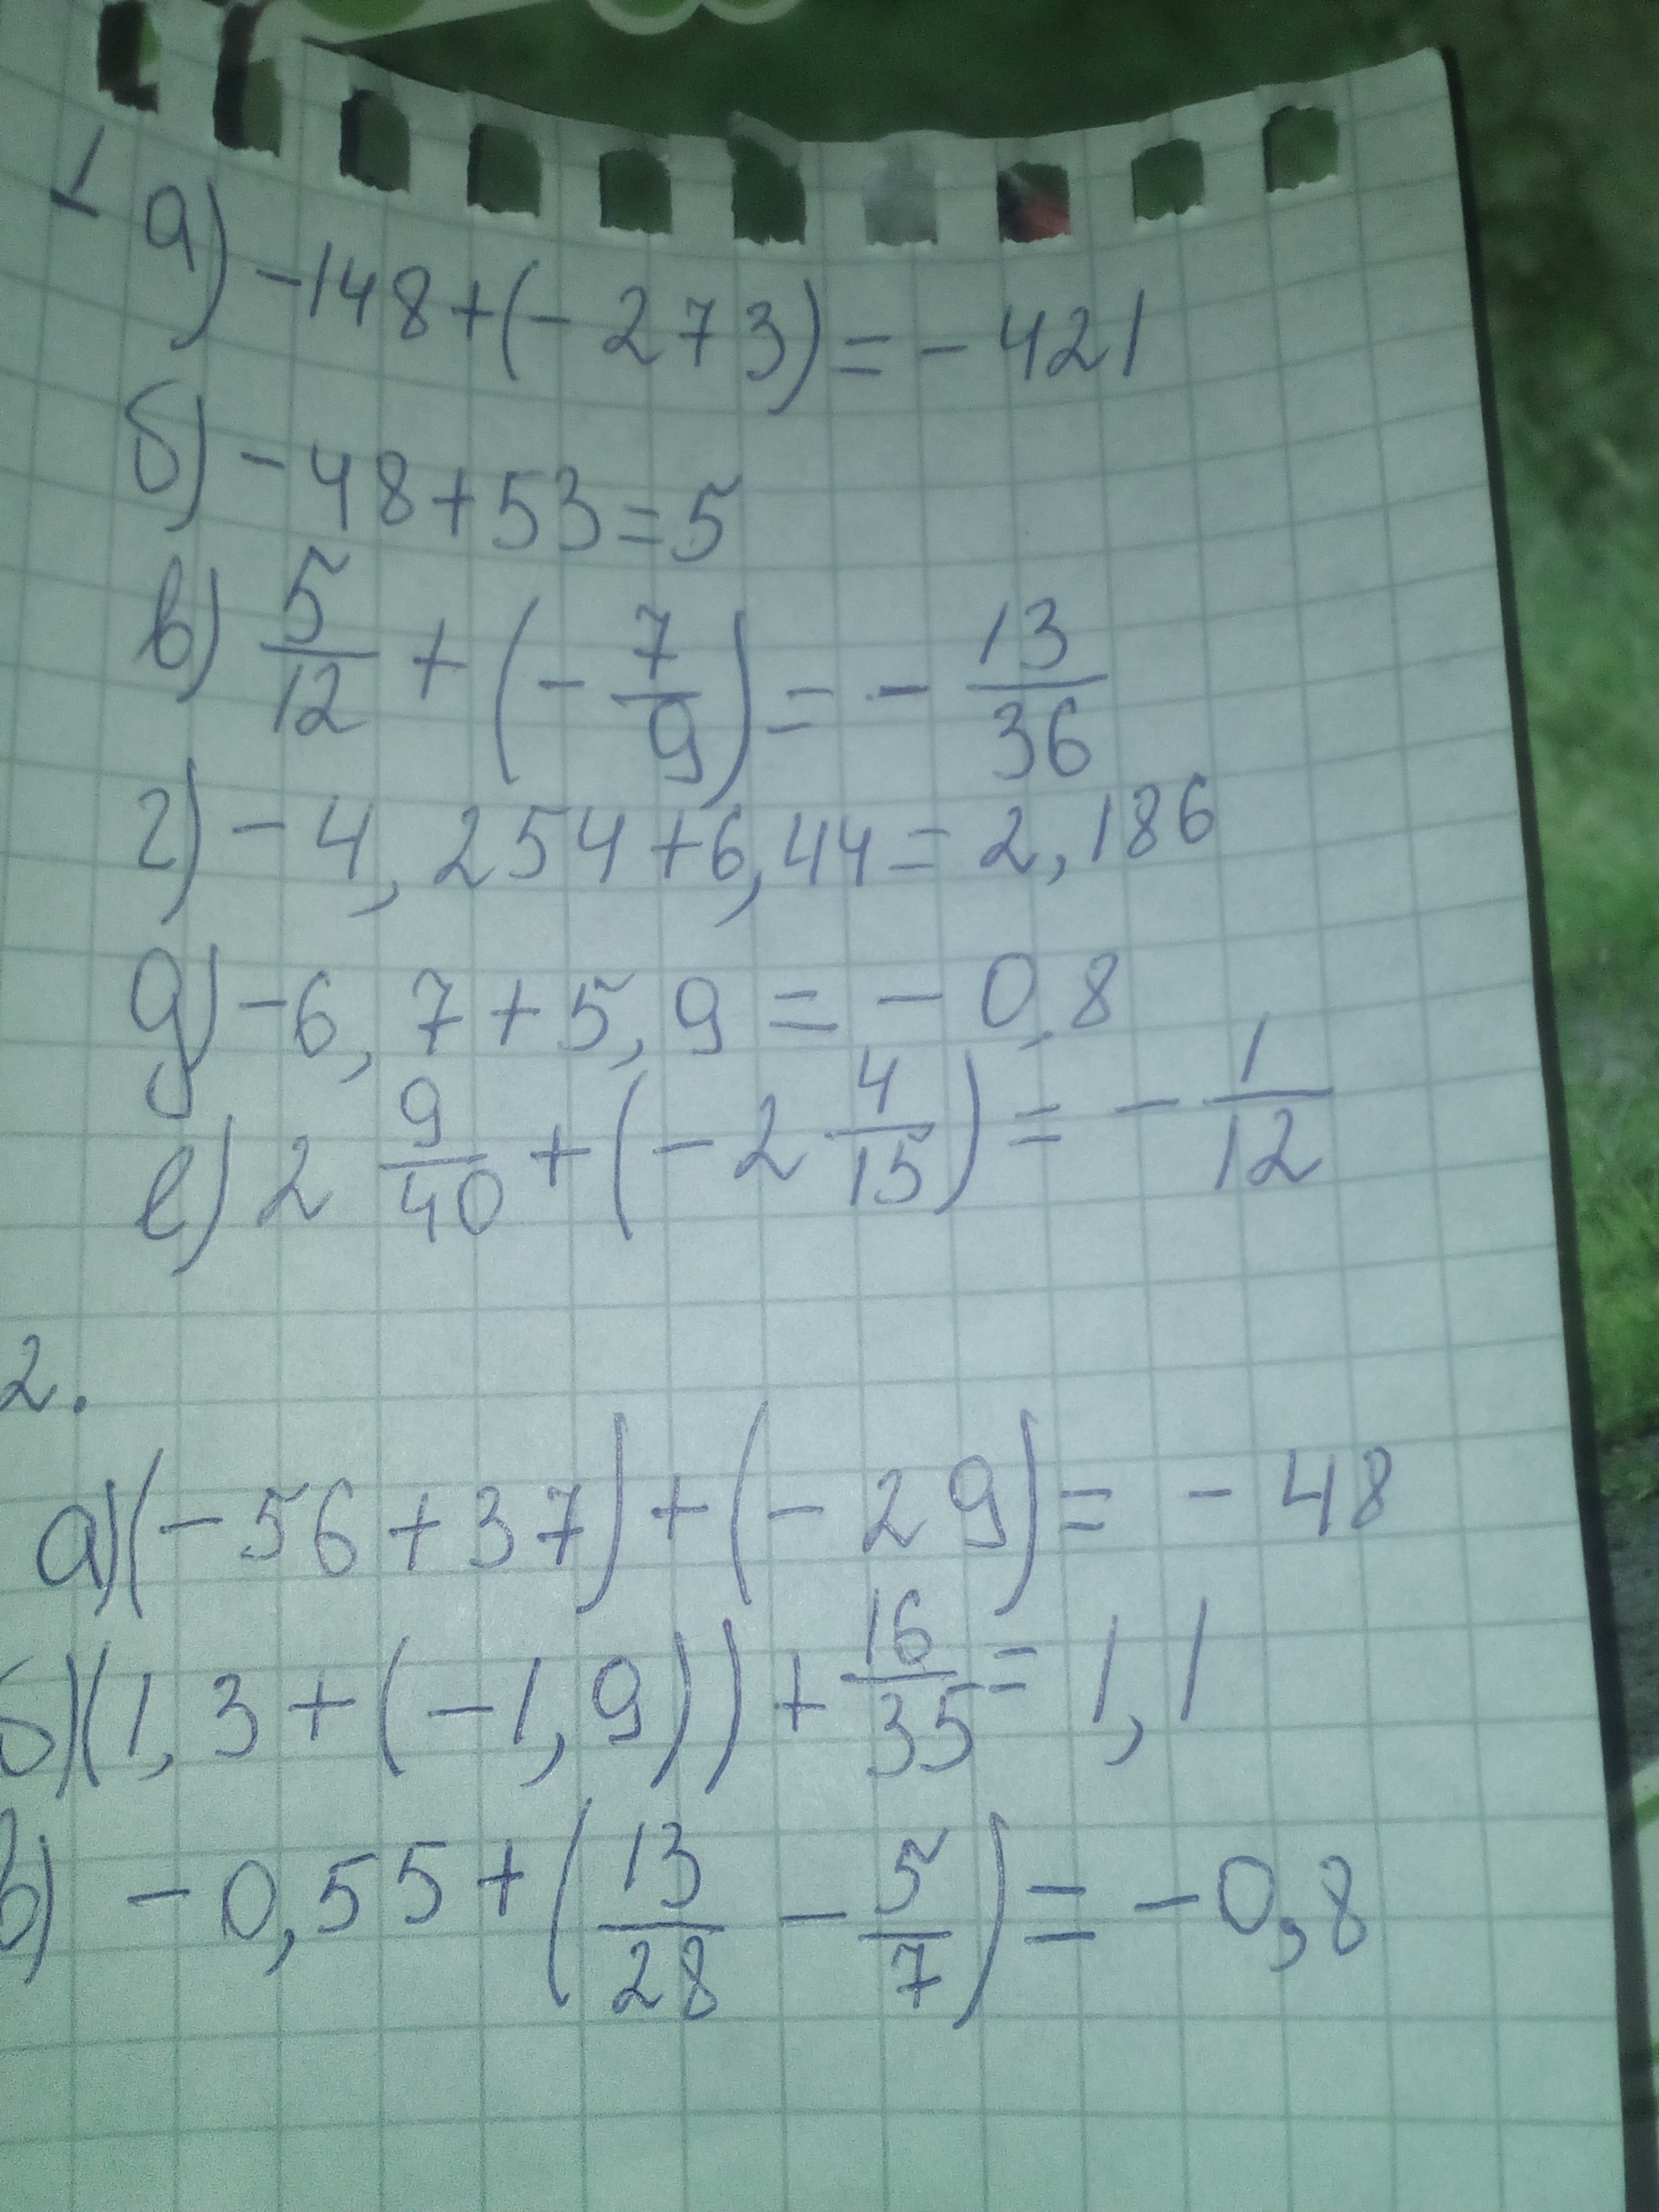 1 а) -148+(-273)=-421
б) -48+53=5
в) 5/12 + (-7/9) = -13/36
г) -4,254+6,44=2,186
д) -6,7+5,9=-0,8
е) 2 9/40 + (-2 4/15) = -1/12
2.
а) (-56+37)+(-29)=-48
б) (1,3+(-1,9))+16/35=1,1
в) -0,55+(13/28-5/7)=-0,8